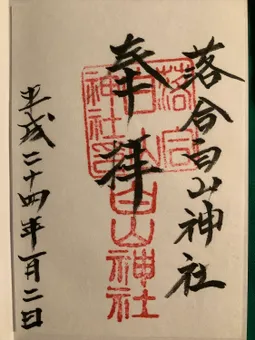 落合白山神社
奉拝
白山神社
落合
神社印
平成二十四年一月二日